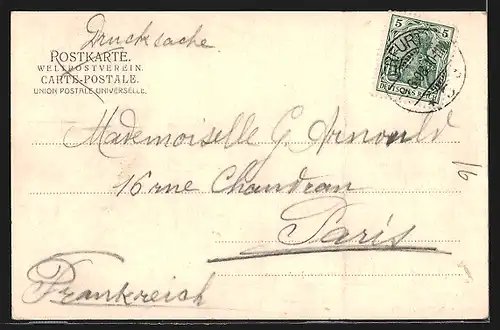 Drucksache
POSTKARTE.
WELTPOSTVEREIN.
CARTE-POSTALE.
UNION POSTALE UNIVERSELLE.
5 5
ERFURT
DEUTSCHES REICH
Mademoiselle G Arnould
16 rue Chaudran
Paris
Frankreich